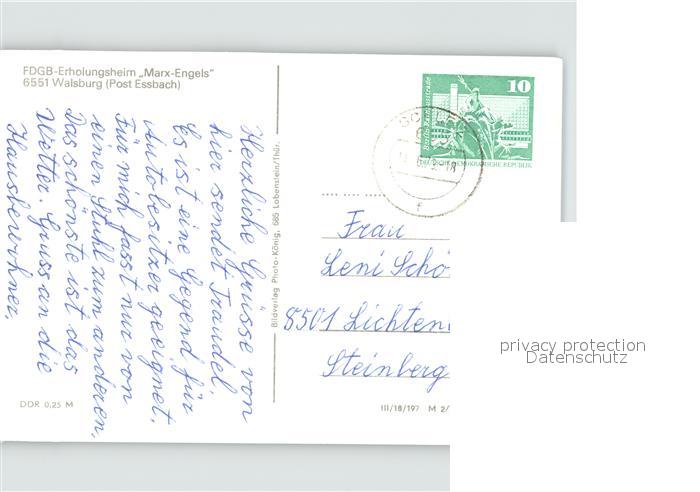 FDGB-Erholungsheim „Marx-Engels"
6551 Walsburg (Post Essbach)
Herzliche Grüsse von
hier sendet Traudel.
Es ist eine Gegend für
Autobesitzer geeignet.
Für mich fasst nur von
einen Stuhl zum anderen,
Das schönste ist das
Wetter. Gruss an die
Hausbewohner,
Bildverlag Photo-König, 685 Lobenstein/Thür.
DDR 0,25 M
10
Berlin, Rathausstraße
DEUTSCHE DEMOKRATISCHE REPUBLIK
f
Frau
Leni Schö
8501 Lichten
Steinberg
III/18/197 M 2/
privacy protection
Datenschutz